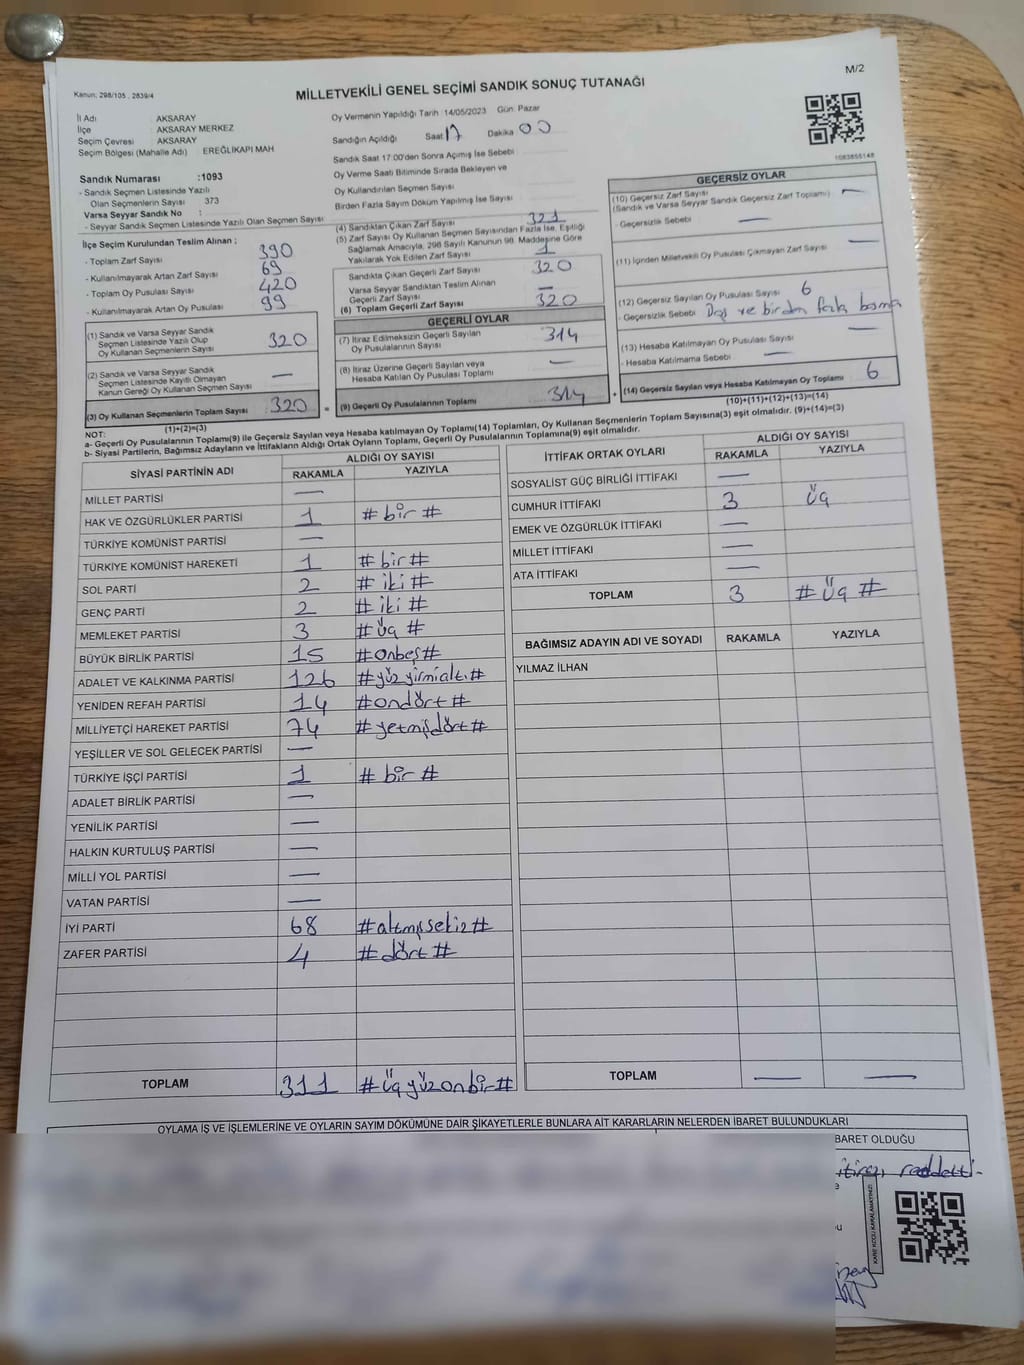 Kanun: 298/105 , 2839/4
MİLLETVEKİLİ GENEL SEÇİMİ SANDIK SONUÇ TUTANAĞI
M/2
İl Adı : AKSARAY
İlçe : AKSARAY MERKEZ
Seçim Çevresi : AKSARAY
Seçim Bölgesi (Mahalle Adı) : EREĞLİKAPI MAH
Sandık Numarası :1093
- Sandık Seçmen Listesinde Yazılı
Olan Seçmenlerin Sayısı : 373
Varsa Seyyar Sandık No :
- Seyyar Sandık Seçmen Listesinde Yazılı Olan Seçmen Sayısı :
İlçe Seçim Kurulundan Teslim Alınan ;
- Toplam Zarf Sayısı : 390
- Kullanılmayarak Artan Zarf Sayısı : 69
- Toplam Oy Pusulası Sayısı : 420
- Kullanılmayarak Artan Oy Pusulası : 99
(1) Sandık ve Varsa Seyyar Sandık
Seçmen Listesinde Yazılı Olup
Oy Kullanan Seçmenlerin Sayısı 320
(2) Sandık ve Varsa Seyyar Sandık
Seçmen Listesinde Kayıtlı Olmayan
Kanun Gereği Oy Kullanan Seçmen Sayısı —
(3) Oy Kullanan Seçmenlerin Toplam Sayısı 320
(1)+(2)=(3)
Oy Vermenin Yapıldığı Tarih : 14/05/2023 Gün: Pazar
Sandığın Açıldığı Saat 17 Dakika 00
Sandık Saat 17:00'den Sonra Açımış İse Sebebi :
Oy Verme Saati Bitiminde Sırada Bekleyen ve
Oy Kullandırılan Seçmen Sayısı
Birden Fazla Sayım Döküm Yapılmış İse Sayısı :
(4) Sandıktan Çıkan Zarf Sayısı 321
(5) Zarf Sayısı Oy Kullanan Seçmen Sayısından Fazla İse, Eşitliği
Sağlamak Amacıyla, 298 Sayılı Kanunun 98. Maddesine Göre
Yakılarak Yok Edilen Zarf Sayısı 1
Sandıkta Çıkan Geçerli Zarf Sayısı 320
Varsa Seyyar Sandıktan Teslim Alınan
Geçerli Zarf Sayısı —
(6) Toplam Geçerli Zarf Sayısı 320
GEÇERLİ OYLAR
(7) İtiraz Edilmeksizin Geçerli Sayılan
Oy Pusulalarının Sayısı 314
(8) İtiraz Üzerine Geçerli Sayılan veya
Hesaba Katılan Oy Pusulası Toplamı —
(9) Geçerli Oy Pusulalarının Toplamı 314
1083855148
GEÇERSİZ OYLAR
(10) Geçersiz Zarf Sayısı —
(Sandık ve Varsa Seyyar Sandık Geçersiz Zarf Toplamı)
- Geçersizlik Sebebi —
(11) İçinden Milletvekili Oy Pusulası Çıkmayan Zarf Sayısı —
(12) Geçersiz Sayılan Oy Pusulası Sayısı 6
- Geçersizlik Sebebi ve birden fazla basma
(13) Hesaba Katılmayan Oy Pusulası Sayısı —
- Hesaba Katılmama Sebebi —
(14) Geçersiz Sayılan veya Hesaba Katılmayan Oy Toplamı 6
(10)+(11)+(12)+(13)=(14)
NOT:
a- Geçerli Oy Pusulalarının Toplamı(9) ile Geçersiz Sayılan veya Hesaba katılmayan Oy Toplamı(14) Toplamları, Oy Kullanan Seçmenlerin Toplam Sayısına(3) eşit olmalıdır. (9)+(14)=(3)
b- Siyasi Partilerin, Bağımsız Adayların ve İttifakların Aldığı Ortak Oyların Toplamı, Geçerli Oy Pusulalarının Toplamına(9) eşit olmalıdır.
SİYASİ PARTİNİN ADI ALDIĞI OY SAYISI
RAKAMLA YAZIYLA
MİLLET PARTİSİ —
HAK VE ÖZGÜRLÜKLER PARTİSİ 1 # bir #
TÜRKİYE KOMÜNİST PARTİSİ —
TÜRKİYE KOMÜNİST HAREKETİ 1 # bir #
SOL PARTİ 2 # iki #
GENÇ PARTİ 2 # iki #
MEMLEKET PARTİSİ 3 # üç #
BÜYÜK BİRLİK PARTİSİ 15 #onbeş#
ADALET VE KALKINMA PARTİSİ 126 #yüzyirmialtı#
YENİDEN REFAH PARTİSİ 14 #ondört#
MİLLİYETÇİ HAREKET PARTİSİ 74 #yetmişdört#
YEŞİLLER VE SOL GELECEK PARTİSİ —
TÜRKİYE İŞÇİ PARTİSİ 1 # bir #
ADALET BİRLİK PARTİSİ —
YENİLİK PARTİSİ —
HALKIN KURTULUŞ PARTİSİ —
MİLLİ YOL PARTİSİ —
VATAN PARTİSİ —
İYİ PARTİ 68 #altmışsekiz#
ZAFER PARTİSİ 4 #dört#
TOPLAM 311 #üçyüzonbir#
İTTİFAK ORTAK OYLARI ALDIĞI OY SAYISI
RAKAMLA YAZIYLA
SOSYALİST GÜÇ BİRLİĞİ İTTİFAKI —
CUMHUR İTTİFAKI 3 üç
EMEK VE ÖZGÜRLÜK İTTİFAKI —
MİLLET İTTİFAKI —
ATA İTTİFAKI —
TOPLAM 3 # üç #
BAĞIMSIZ ADAYIN ADI VE SOYADI RAKAMLA YAZIYLA
YILMAZ İLHAN
TOPLAM — —
OYLAMA İŞ VE İŞLEMLERİNE VE OYLARIN SAYIM DÖKÜMÜNE DAİR ŞİKAYETLERLE BUNLARA AİT KARARLARIN NELERDEN İBARET BULUNDUKLARI
BARET OLDUĞU
itirazı reddetti-